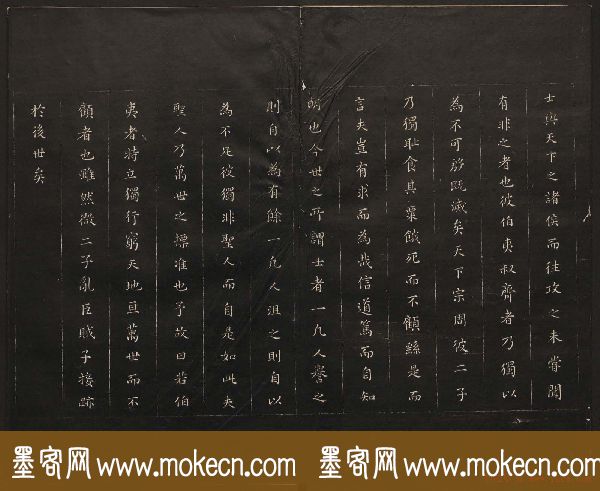 士與天下之諸侯而往攻之未嘗聞
有非之者也彼伯夷叔齊者乃獨以
為不可殷既滅矣天下宗周彼二子
乃獨耻食其粟餓死而不顧繇是而
言夫豈有求而為哉信道篤而自知
明也今世之所謂士者一凡人譽之
則自以為有餘一凡人沮之則自以
為不足彼獨非聖人而自是如此夫
聖人乃萬世之標准也予故曰若伯
夷者特立獨行窮天地亘萬世而不
顧者也雖然微二子亂臣賊子接跡
於後世矣
墨客网 www.mokecn.com 墨客网 www.mokecn.com